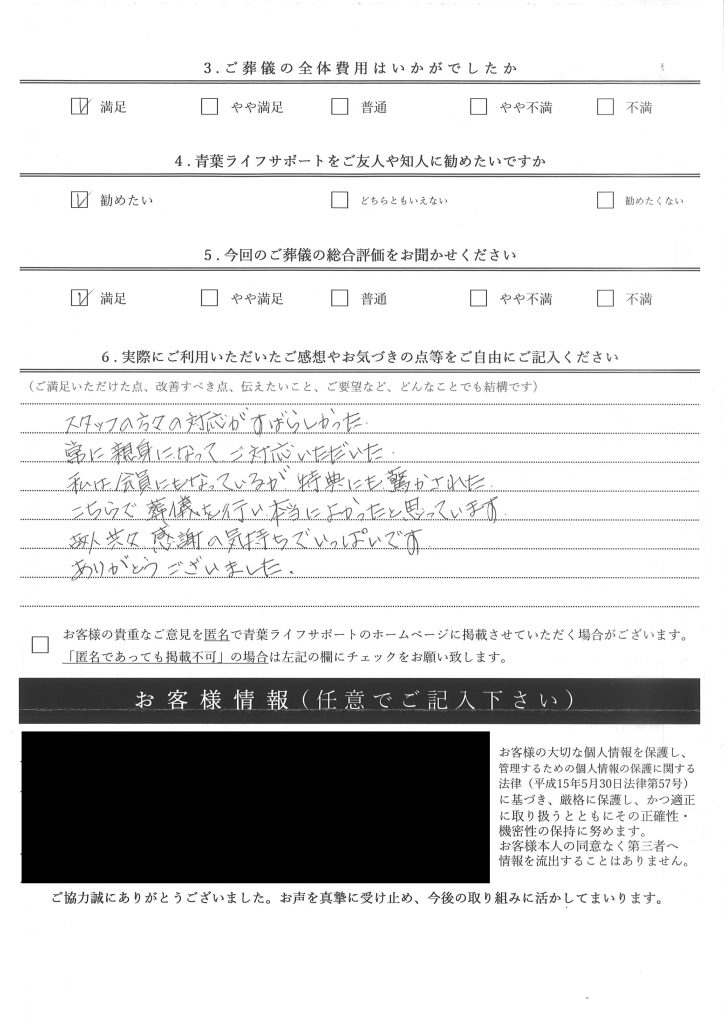 3.ご葬儀の全体費用はいかがでしたか
満足 やや満足 普通 やや不満 不満
4.青葉ライフサポートをご友人や知人に勧めたいですか
勧めたい どちらともいえない 勧めたくない
5.今回のご葬儀の総合評価をお聞かせください
満足 やや満足 普通 やや不満 不満
6.実際にご利用いただいたご感想やお気づきの点等をご自由にご記入ください
(ご満足いただけた点、改善すべき点、伝えたいこと、ご要望など、どんなことでも結構です)
スタッフの方々の対応がすばらしかった.
常に親身になってご対応いただいた.
私は会員にもなっているが特典にも驚かされた.
こちらで葬儀を行い本当によかったと思っています.
共々感謝の気持ちでいっぱいです.
ありがとうございました.
お客様の貴重なご意見を匿名で青葉ライフサポートのホームページに掲載させていただく場合がございます。
「匿名であっても掲載不可」の場合は左記の欄にチェックをお願い致します。
お客様情報(任意でご記入下さい)
お客様の大切な個人情報を保護し、
管理するための個人情報の保護に関する
法律(平成15年5月30日法律第57号)
に基づき、厳格に保護し、かつ適正
に取り扱うとともにその正確性・
機密性の保持に努めます。
お客様本人の同意なく第三者へ
情報を流出することはありません。
ご協力誠にありがとうございました。お声を真摯に受け止め、今後の取り組みに活かしてまいります。